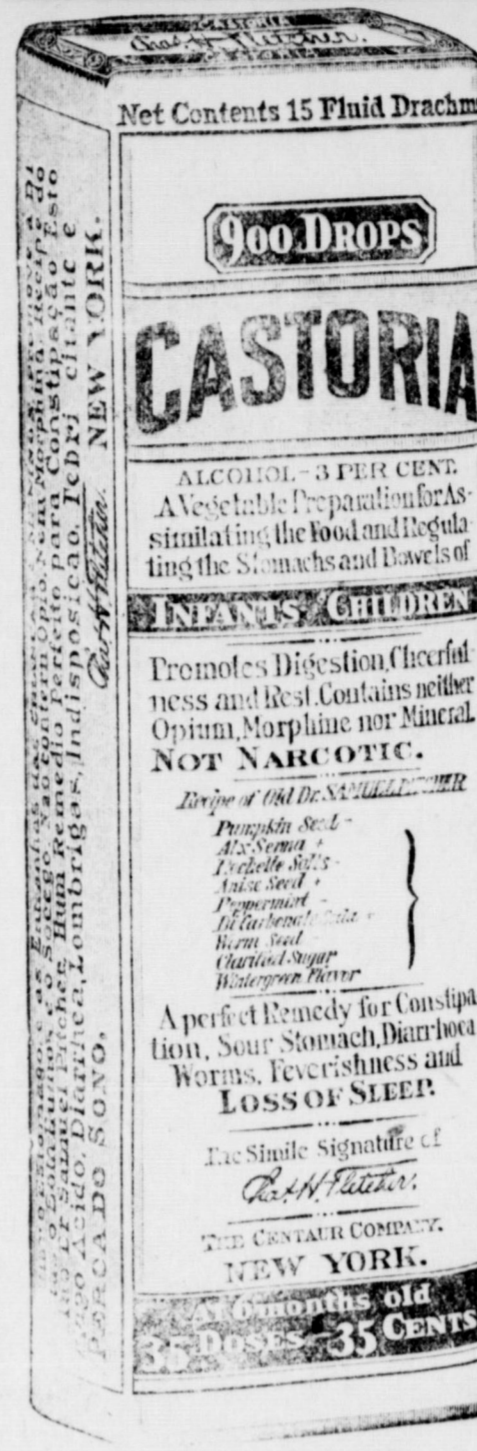 CASTORIA
Chas. H. Fletcher.
Net Contents 15 Fluid Drachm
900 DROPS
CASTORIA
ALCOHOL-3 PER CENT.
A Vegetable Preparation for As-
similating the Food and Regula-
ting the Stomachs and Bowels of
INFANTS CHILDREN
Promotes Digestion, Cheerful-
ness and Rest. Contains neither
Opium, Morphine nor Mineral.
NOT NARCOTIC.
Recipe of Old Dr. SAMUEL PITCHER
Pumpkin Seed -
Alx Senna +
Rochelle Salts -
Anise Seed +
Peppermint -
Bi Carbonate Soda +
Worm Seed -
Clarified Sugar
Wintergreen Flavor
A perfect Remedy for Constipa-
tion, Sour Stomach, Diarrhoea
Worms, Feverishness and
LOSS OF SLEEP.
Fac Simile Signature of
Chas. H. Fletcher.
THE CENTAUR COMPANY.
NEW YORK.
At 6 months old
35 DOSES - 35 CENTS
Estomago, e as
e o Socego. Não contem Opio, Nem Morphina. Recipe do
Samuel Pitcher. Hum Remedio Perfeito para Constipação Esto
Acido, Diarrhca, Lombrigas, Indisposicao, Febri citante e
PERCA DO SONO.
Chas. H. Fletcher. NEW YORK.